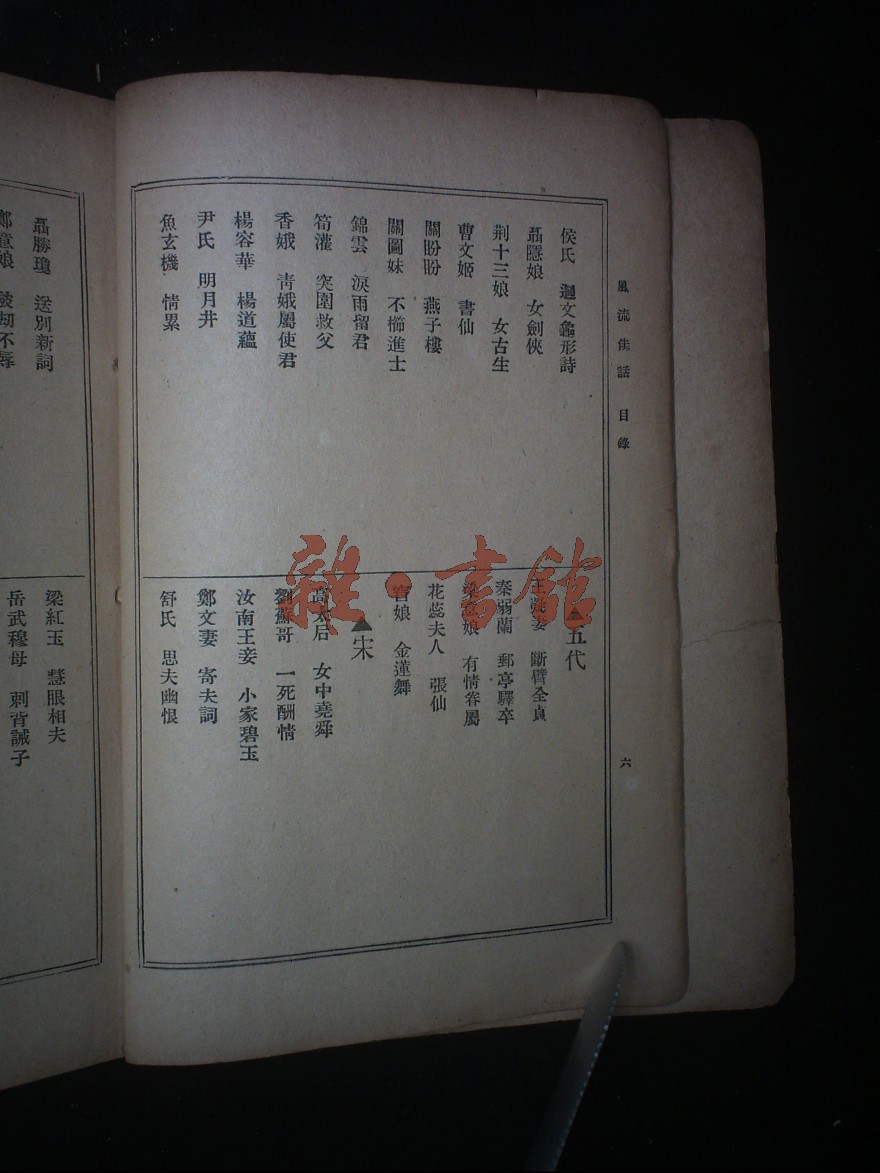 風流佳話 目錄
六
侯氏 迴文龜形詩
聶隱娘 女劍俠
荆十三娘 女古生
曹文姬 書仙
關盼盼 燕子樓
關圖妹 不櫛進士
錦雲 淚雨留君
荀灌 突圍救父
香娥 靑娥屬使君
楊容華 楊道蘊
尹氏 明月井
魚玄機 情累
▲五代
王凝妻 斷臂全貞
秦弱蘭 郵亭驛卒
梁意娘 有情眷屬
花蕊夫人 張仙
窅娘 金蓮舞
▲宋
高太后 女中堯舜
劉蘇哥 一死酬情
汝南王妾 小家碧玉
鄭文妻 寄夫詞
舒氏 思夫幽恨
聶勝瓊 送別新詞
鄭意娘 被劫不辱
梁紅玉 慧眼相夫
岳武穆母 刺背誡子
雜·書館